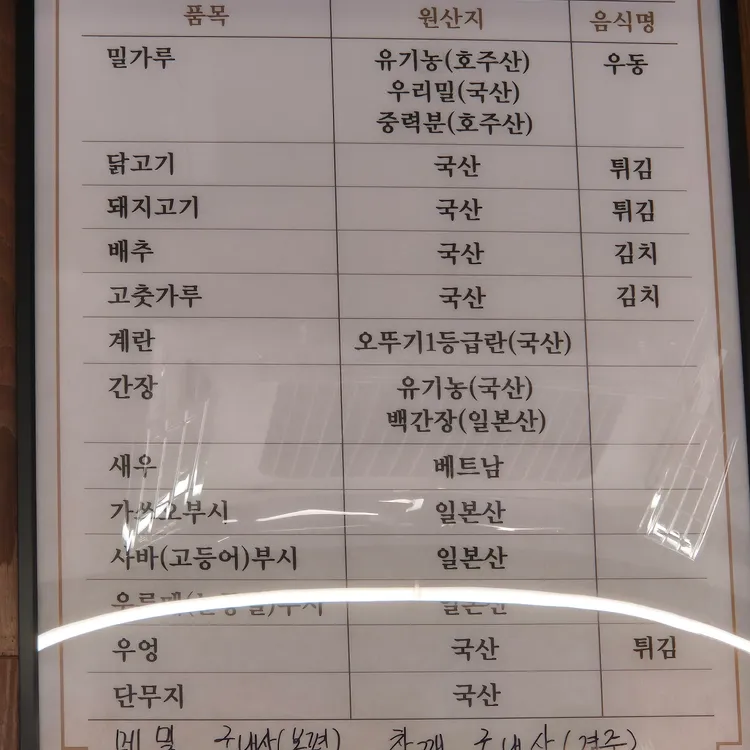 품목 원산지 음식명
밀가루 유기농(호주산) 우동
우리밀(국산)
중력분(호주산)
닭고기 국산 튀김
돼지고기 국산 튀김
배추 국산 김치
고춧가루 국산 김치
계란 오뚜기1등급란(국산)
간장 유기농(국산)
백간장(일본산)
새우 베트남
가쓰오부시 일본산
사바(고등어)부시 일본산
일본산
우엉 국산 튀김
단무지 국산
메밀 국내산(봉평) 참깨 국내산(경주)